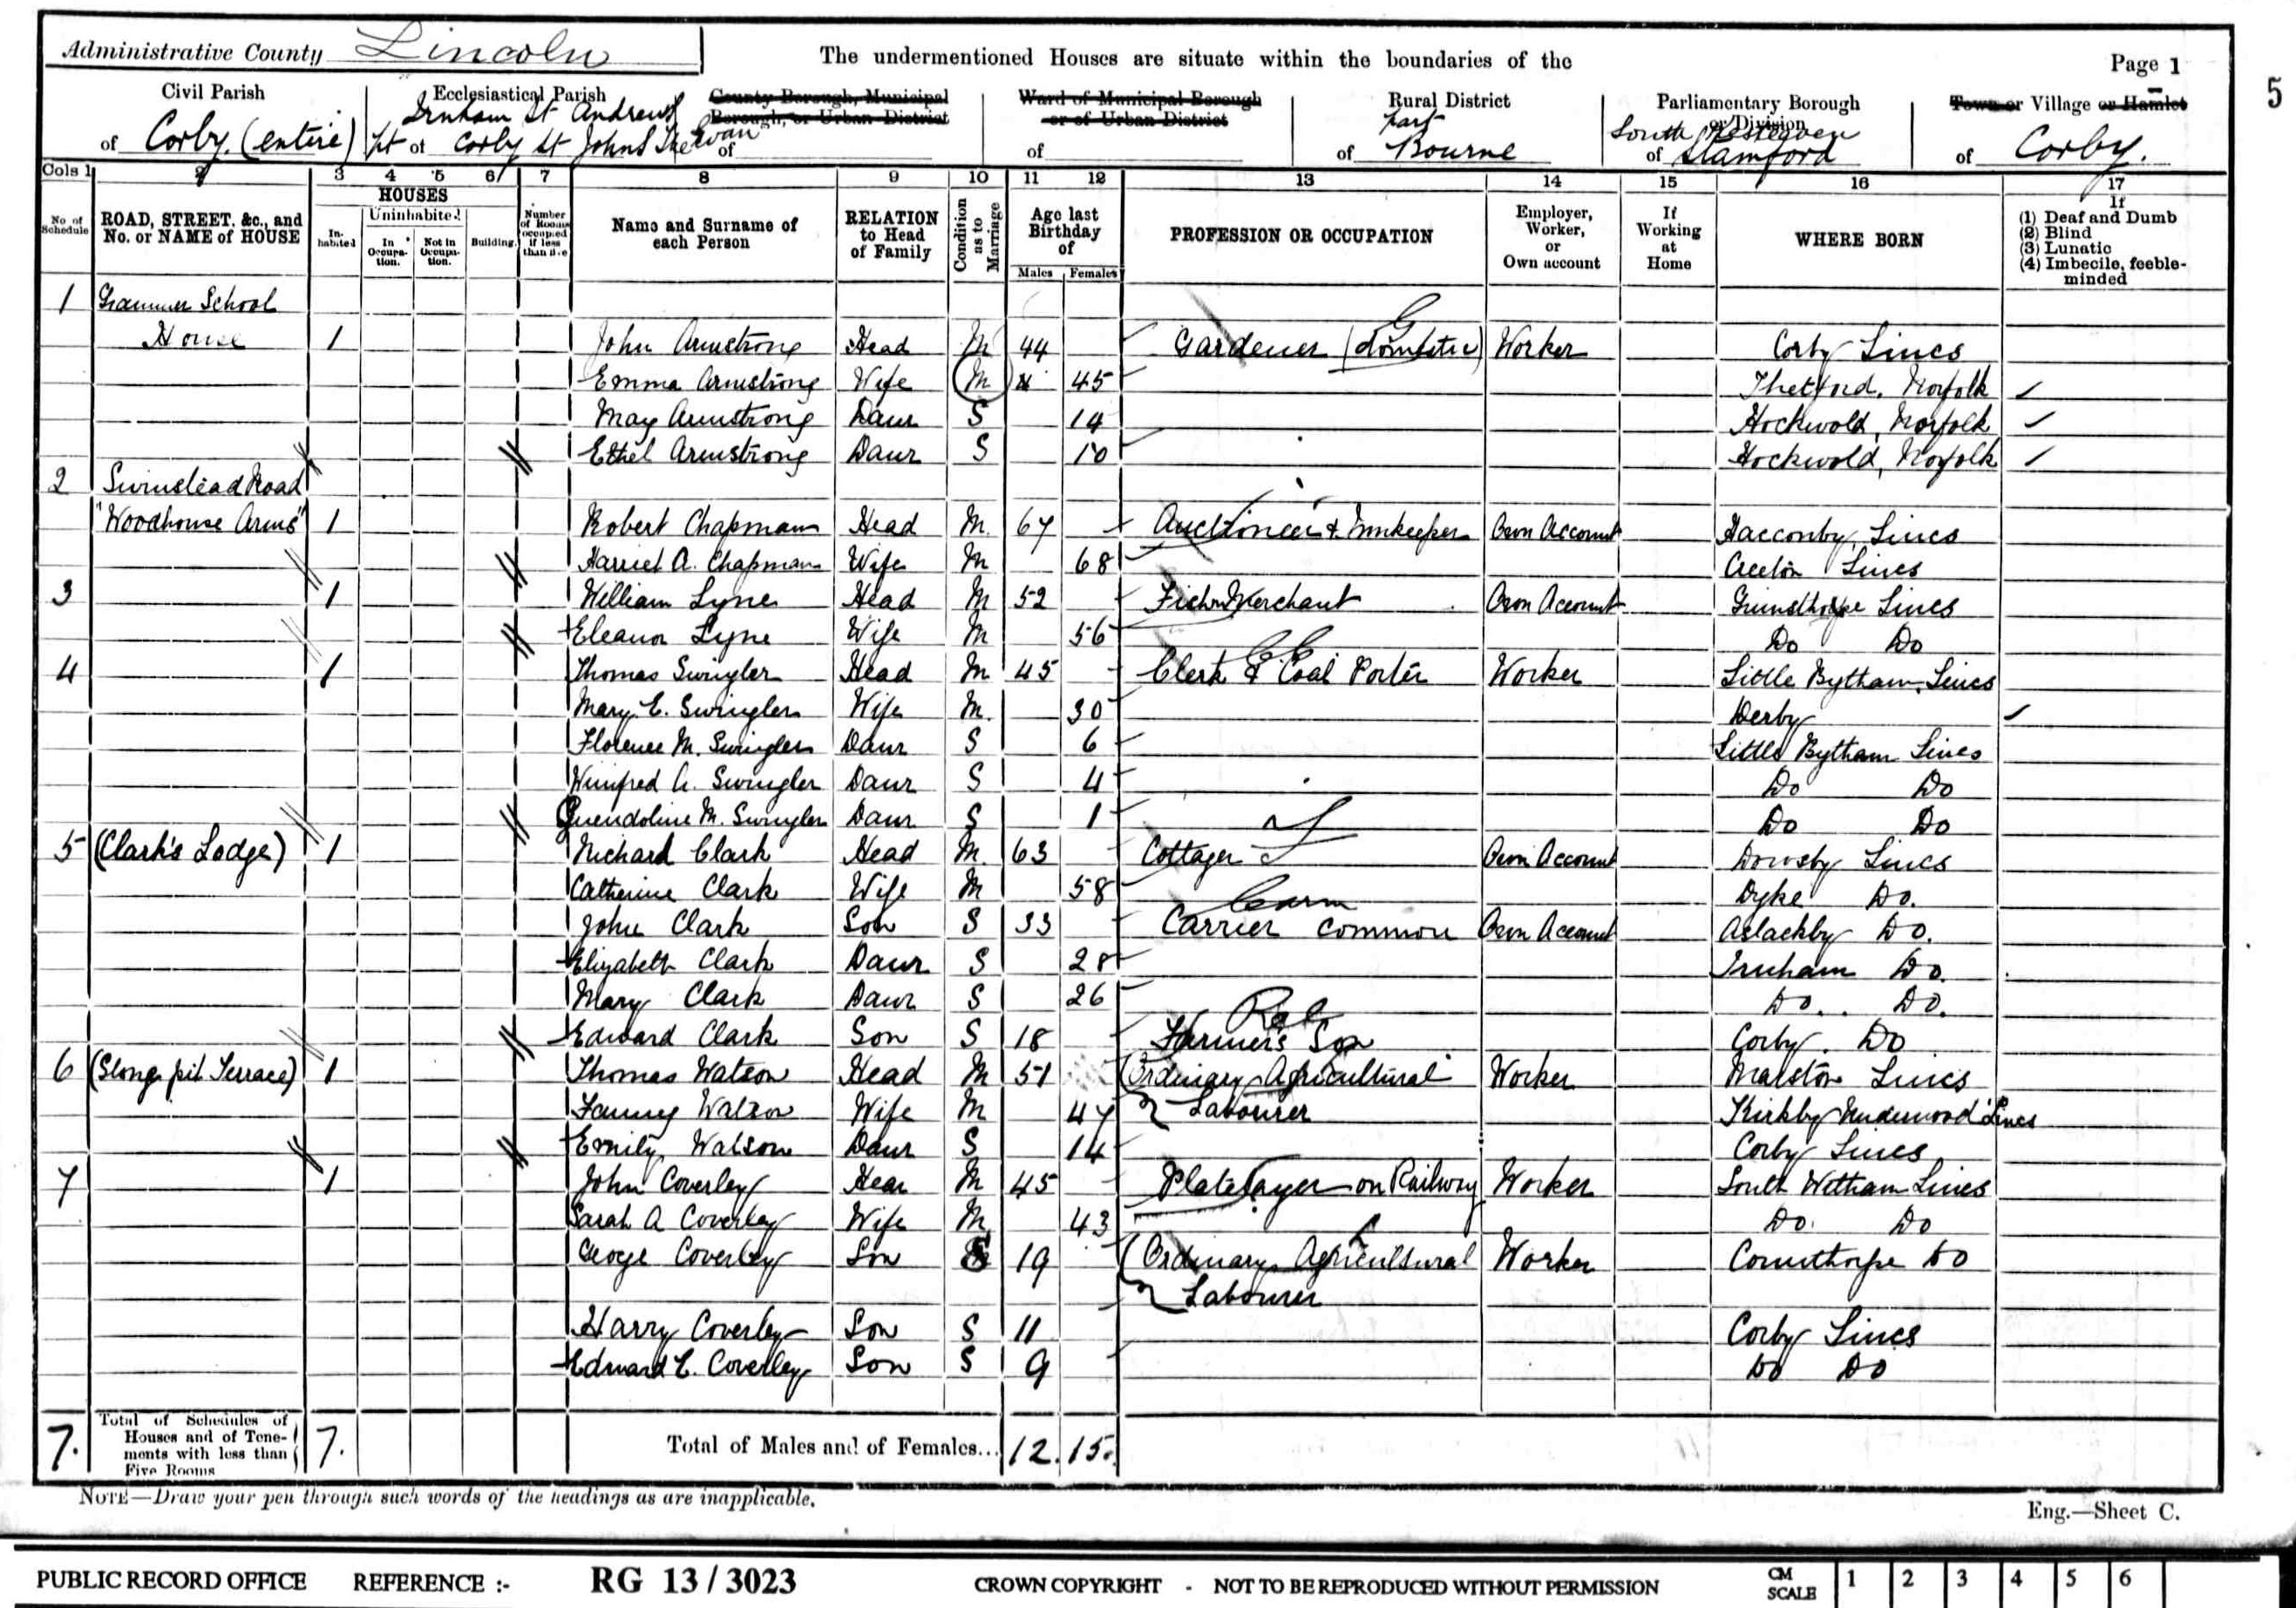 Administrative County Lincoln
The undermentioned Houses are situate within the boundaries of the
Page 1
5
Civil Parish
of Corby. (entire)
Ecclesiastical Parish
Irnham St Andrews
pt of Corby St Johns The Evan
County Borough, Municipal Borough, or Urban District
of
Ward of Municipal Borough or of Urban District
of
Rural District
Part
of Bourne
Parliamentary Borough or Division
South Kesteven
of Stamford
Town or Village or Hamlet
of Corby.
Cols 1 2 3 4 5 6 7 8 9 10 11 12 13 14 15 16 17
No of Schedule
ROAD, STREET, &c., and No. or NAME of HOUSE
HOUSES
Inhabited
Uninhabited
In Occupation.
Not in Occupation.
Building.
Number of Rooms occupied if less than five
Name and Surname of each Person
RELATION to Head of Family
Condition as to Marriage
Age last Birthday of
Males Females
PROFESSION OR OCCUPATION
Employer, Worker, or Own account
If Working at Home
WHERE BORN
If
(1) Deaf and Dumb
(2) Blind
(3) Lunatic
(4) Imbecile, feeble-minded
1 Grammer School
House 1 John Armstrong Head M 44 Gardener (domestic) Worker Corby Lincs
Emma Armstrong Wife M 45 Thetford, Norfolk
May Armstrong Daur S 14 Hockwold, Norfolk
Ethel Armstrong Daur S 10 Hockwold, Norfolk
2 Swinstead Road
"Woodhouse Arms" 1 Robert Chapman Head M. 67 Auctioneer & Innkeeper Own Account Hacconby, Lincs
Harriet A. Chapman Wife M 68 Creeton Lincs
3 1 William Lyne Head M 52 Merchant Own Account Grimsthorpe Lincs
Eleanor Lyne Wife M 56 Do Do
4 1 Thomas Swingler Head M 45 Clerk & Coal Porter Worker Little Bytham, Lincs
Mary E. Swingler Wife M. 30 Derby
Florence M. Swingler Daur S 6 Little Bytham Lincs
Winifred A. Swingler Daur S 4 Do Do
Guendoline M. Swingler Daur S 1 Do Do
5 (Clark's Lodge) 1 Richard Clark Head M. 63 Cottager Own Account Dowsby Lincs
Catherine Clark Wife M 58 Dyke Do.
John Clark Son S 33 Carrier common Own Account Aslackby Do.
Elizabeth Clark Daur S 28 Irnham Do.
Mary Clark Daur S 26 Do.. Do.
Edward Clark Son S 18 Farmer's Son Corby. Do
6 (Stone pit Terrace) 1 Thomas Watson Head M 51 (Ordinary Agricultural Worker Marston Lincs
Fanny Watson Wife M 47 Labourer Kirkby Underwood Lincs
Emily Watson Daur S 14 Corby Lincs
7 1 John Coverley Hear M 45 Platelayer on Railway Worker South Witham Lincs
Sarah A Coverley Wife M 43 Do. Do
George Coverley Son S 19 (Ordinary Agricultural Worker Counthorpe Do
Labourer
Harry Coverley Son S 11 Corby Lincs
Edward E. Coverley Son S 9 Do Do
7. Total of Schedules of Houses and of Tenements with less than Five Rooms 7. Total of Males and of Females... 12. 15.
NOTE—Draw your pen through such words of the headings as are inapplicable.
Eng.—Sheet C.
PUBLIC RECORD OFFICE REFERENCE :- RG 13 / 3023 CROWN COPYRIGHT - NOT TO BE REPRODUCED WITHOUT PERMISSION CM SCALE 1 2 3 4 5 6